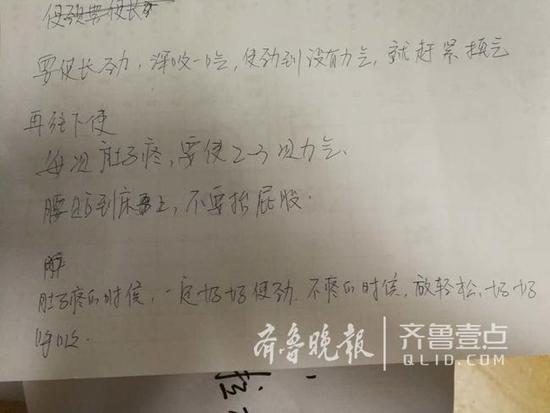 要使长劲，深吸一口气，使劲到没有力气，就赶紧换气
再往下使
每次肚子疼，要使2-3次力气、
腰贴到床上，不要抬屁股.
肚子疼的时候，一定好好使劲.不疼的时候，放轻松、好好
呼吸.
齐鲁晚报
齐鲁壹点
QLID.COM